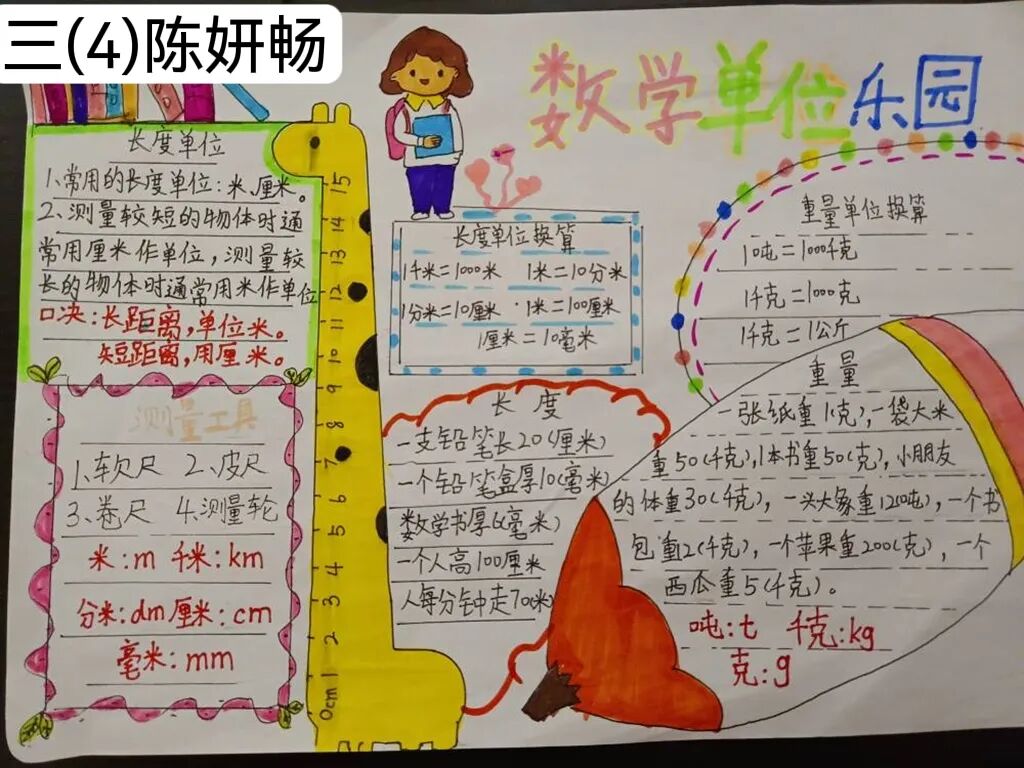 三(4)陈妍畅
数学单位乐园
长度单位
1、常用的长度单位:米、厘米。
2、测量较短的物体时通
常用厘米作单位,测量较
长的物体时通常用米作单位
口决:长距离,单位米。
短距离,用厘米。
测量工具
1、软尺 2、皮尺
3、卷尺 4、测量轮
米:m 千米:km
分米:dm 厘米:cm
毫米:mm
15
14
13
12
11
10
9
8
7
6
5
4
3
2
1
0cm
长度单位换算
1千米=1000米 1米=10分米
1分米=10厘米 1米=100厘米
1厘米=10毫米
长度
一支铅笔长20(厘米)
一个铅笔盒厚10(毫米)
数学书厚6(毫米)
一个人高100厘米
人每分钟走70(米)
重量单位换算
1吨=1000千克
1千克=1000克
1千克=1公斤
重量
一张纸重1(克),一袋大米
重50(千克),1本书重50(克),小朋友
的体重30(千克),一头大象重12(吨),一个书
包重2(千克),一个苹果重200(克),一个
西瓜重5(千克)。
吨:t 千克:kg
克:g